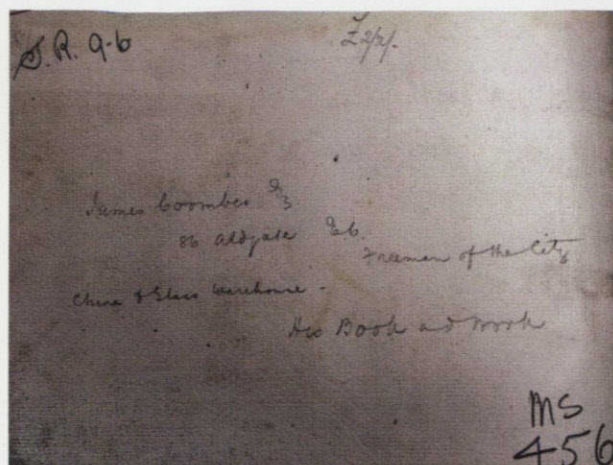 S.R. 9.b
£2/2/-
James Coombes
86 Aldgate
Freeman of the City
China & Glass Warehouse -
His Book and Work
MS
456